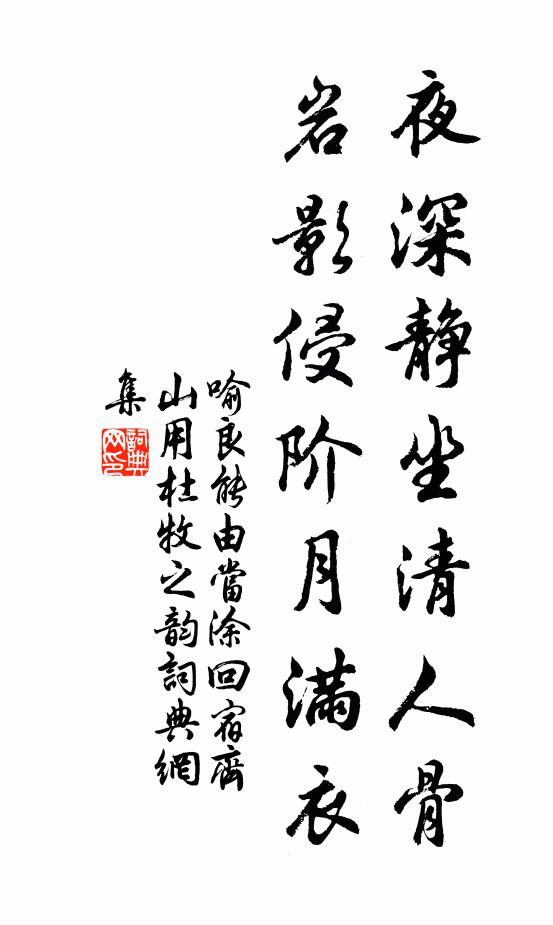 夜深静坐清人骨
岩影侵阶月满衣
喻良能由當涂回宿齊
山用杜牧之韵詞典網
集
詞典
网印